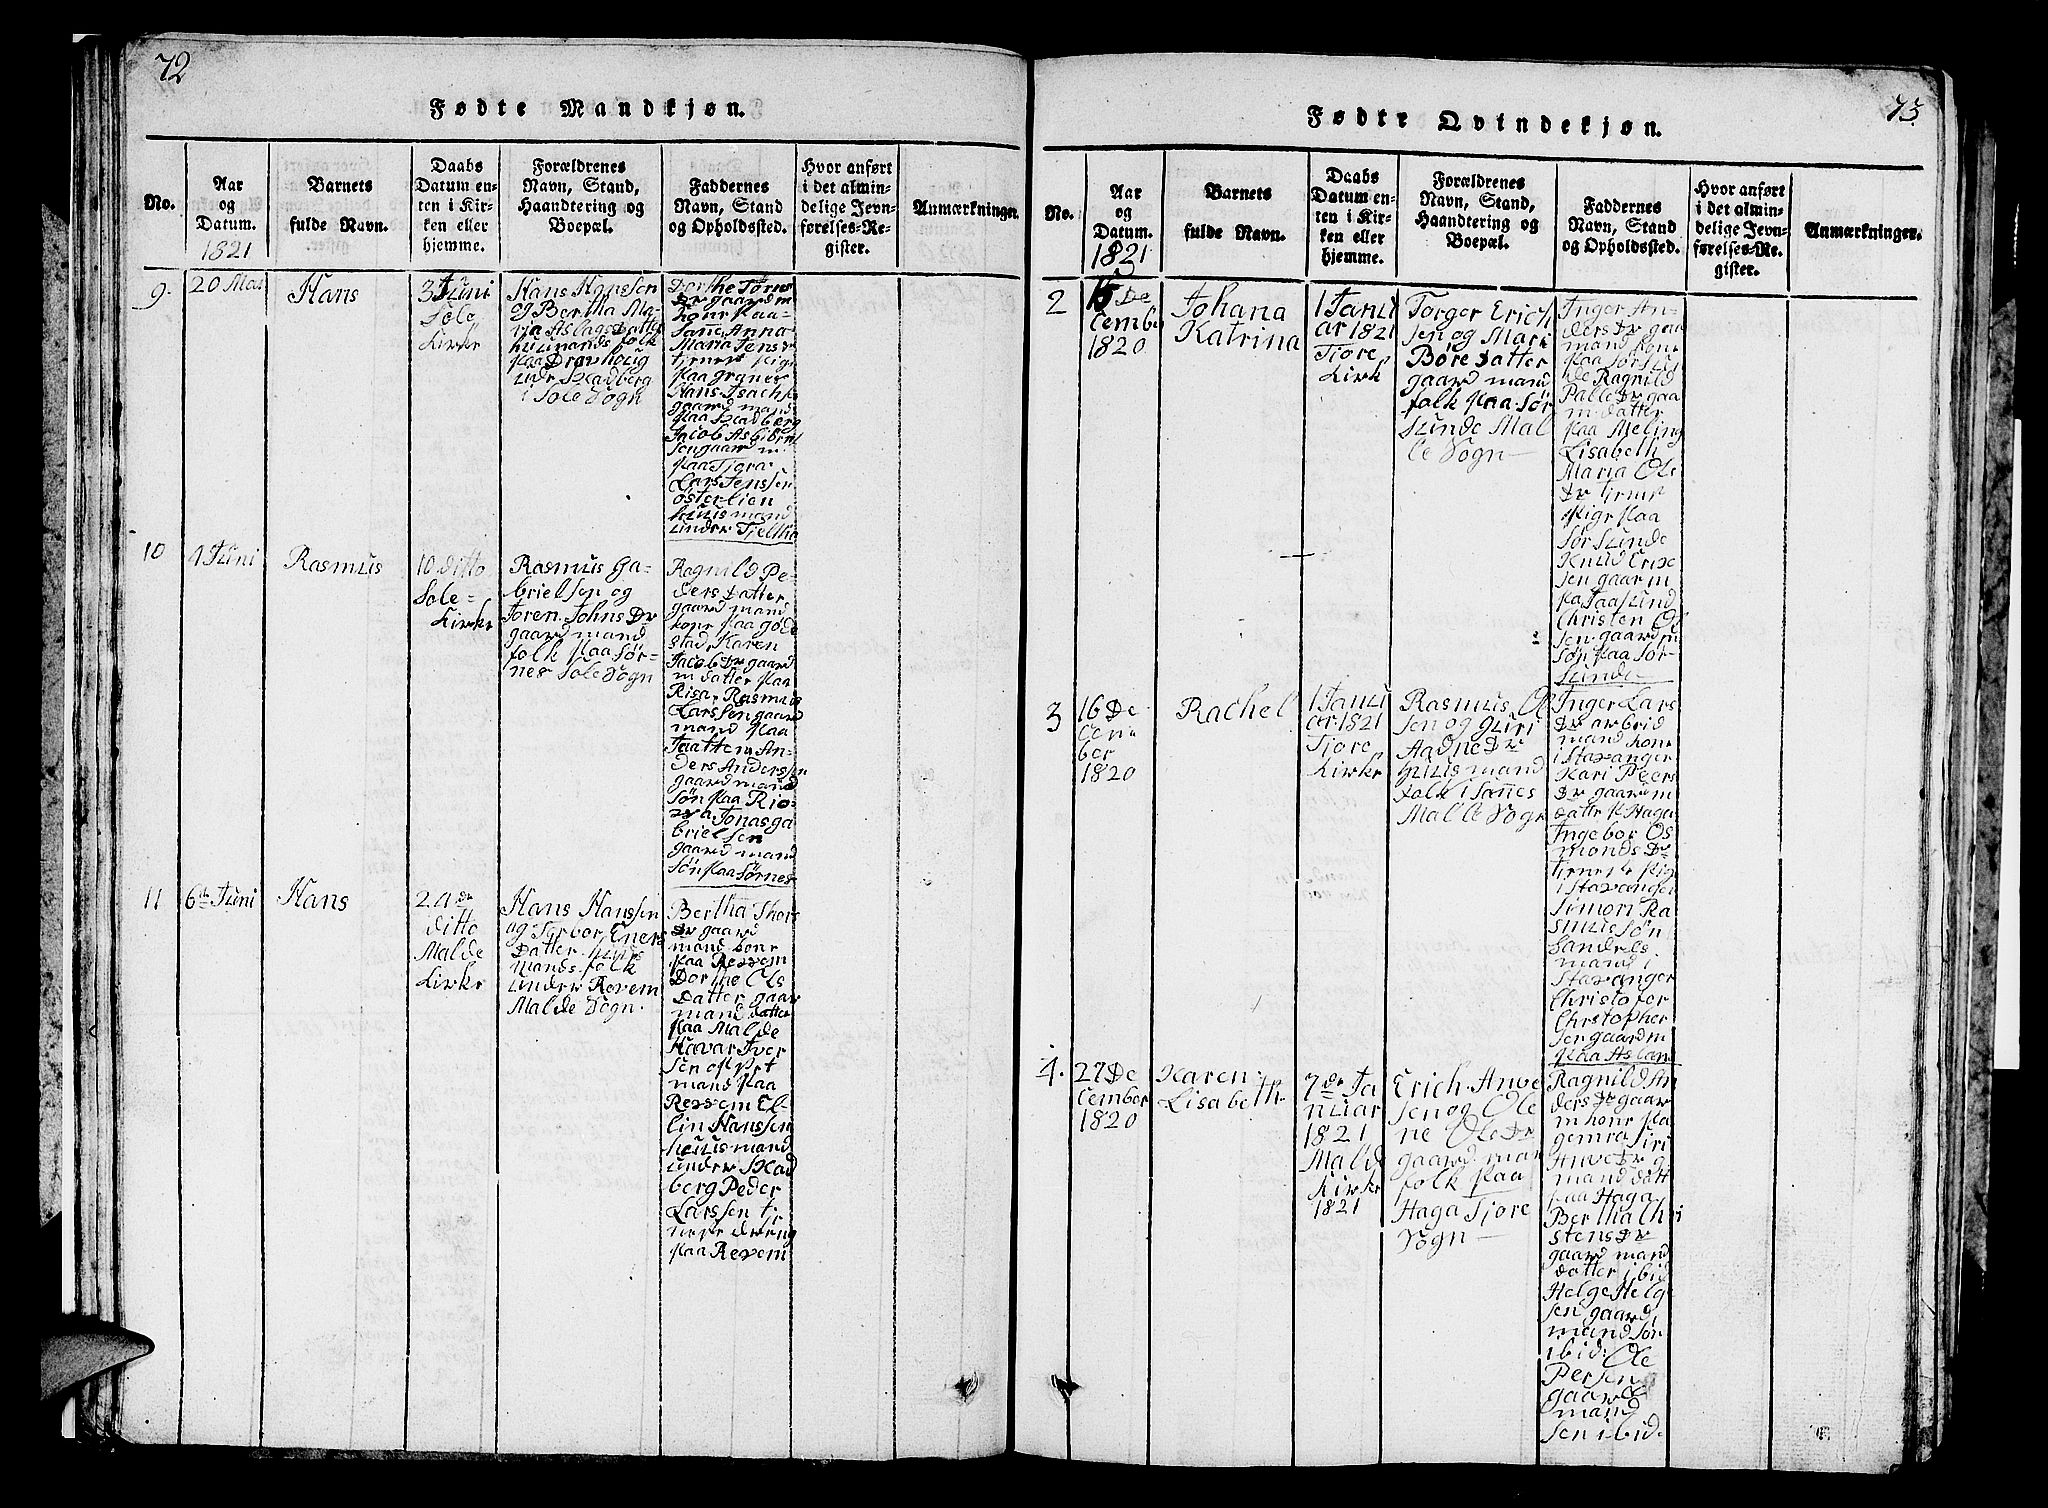 72
Fødte Mandkjøn.
No.
Aar
og
Datum.
1821
Barnets
fulde Navn.
Daabs
Datum en-
ten i Kir-
ken eller
hjemme.
Forældrenes
Navn, Stand,
Haandtering og
Boepæl.
Faddernes
Navn, Stand
og Opholdssted.
Hvor anført
i det almin-
delige Jevn-
førelses-Re-
gister.
Anmærkninger.
9.
20 Mai
Hans
3 Juni
Sole
Kirke
Hans Hanssen
og Bertha Ma-
ria Aslags Datter
huusmands folk
paa
under Skadberg
i Sole Sogn
Dorthe Tørres
Dr gaard m
kone paa
Sanne Anna
Maria Jens Dr
tjeneste Pige
paa granes
Hans Isachs
gaard mand
paa Skadberg
Jacob Asbiørn
sen gaard m
paa Tjora
Lars Jenssen
østerlien
huusmand
under Tjeltha
10
4 Juni
Rasmus
10 ditto
Sole-
Kirke
Rasmus Ga-
brielsen og
Joren Johns Dr
gaard mand
folk paa Sør-
nes Sole Sogn
Ragnild Pe-
ders Datter
gaard mand
kone paa gode
stad, Karen
Jacobs Dr gaard
m datter paa
Risa, Rasmus
Larssen gaard
mand paa
An-
ders Anderssen
gaard mand
søn paa
Jonas ga
brielsen
gaard mand
søn paa Sørnes
11
6te Juni
Hans
24de
ditto
Malde
Kirke
Hans Hanssen
og Torbor, Eners
Datter. huus
mands folk
under Revem
Malde Sogn.
Bertha Thors
Dr gaard
mand kone
paa Revem
Dorthe Ols
Datter gaar
mand datter
paa Malde
Havar Iver
sen
mand paa
Revem El-
lin Hanssen
huusmand
under Skad
berg Peder
Larssen tje
neste dreng
paa Revem
73.
Fødte Qvindekjøn.
No.
Aar
og
Datum.
1821
Barnets
fulde Navn.
Daabs
Datum en-
ten i Kir-
ken eller
hjemme.
Forældrenes
Navn, Stand,
Haandtering og
Boepæl.
Faddernes
Navn, Stand
og Opholdssted.
Hvor anført
i det almin-
delige Jevn-
førelses-Re-
gister.
Anmærkninger.
2
15 De
cembe
1820
Johana
Katrina
1 Janu
ar 1821
Tjore
Kirk
Torger Erich
sen og Mari
Bore Datter
gaard mand
folk paa Sør
Sunde Mal
le Sogn
Inger An-
ders Dr gaa
mand kone
paa Sør Sun
de Ragnild
Palle Dr gaa
m datter
paa Meling
Lisabeth
Maria Ole
Dr tjenest
Pige paa
Sør Sunde
Knud Erix
sen gaar m
paa Sund
Christen Ol
sen gaard m
søn paa Sør-
Sunde
3
16 De
cem
ber
1820
Rachel
1 Janu
ar 1821
Tjore
Kirke
Rasmus Ol
sen og Guri
Aadne Dr
huusmand
folk i Sønes
Malle Sogn
Inger Lars
Dr arbeid
mand kone
i Stavanger
Kari Peers
Dr gaard m
datter p Haga
Ingebor Os
monds Dr
tjeneste Pig
i Stavanger
Simon Ra
smus søn
mand i
Stavanger
Christofor
Christopher
sen gaard m
paa Asland
4.
27 De
cember
1820
Karen
Lisabeth
7de Ja
nuar
1821
Mald
Kirke
1821
Erich Anve
sen og Ole
ne Ole Dr
gaard man
folk paa
Haga Tjore
Sogn
Ragnild An
ders Dr gaar
m kone paa
gemra Siri
Anve Dr g
mand datt
paa Haga
Bertha Chri
stens Dr
gaard mand
datter ibid
Helge Helg
sen gaard
mand søn
ibid: Ole
Persen
gaard
mand
sen ibid.